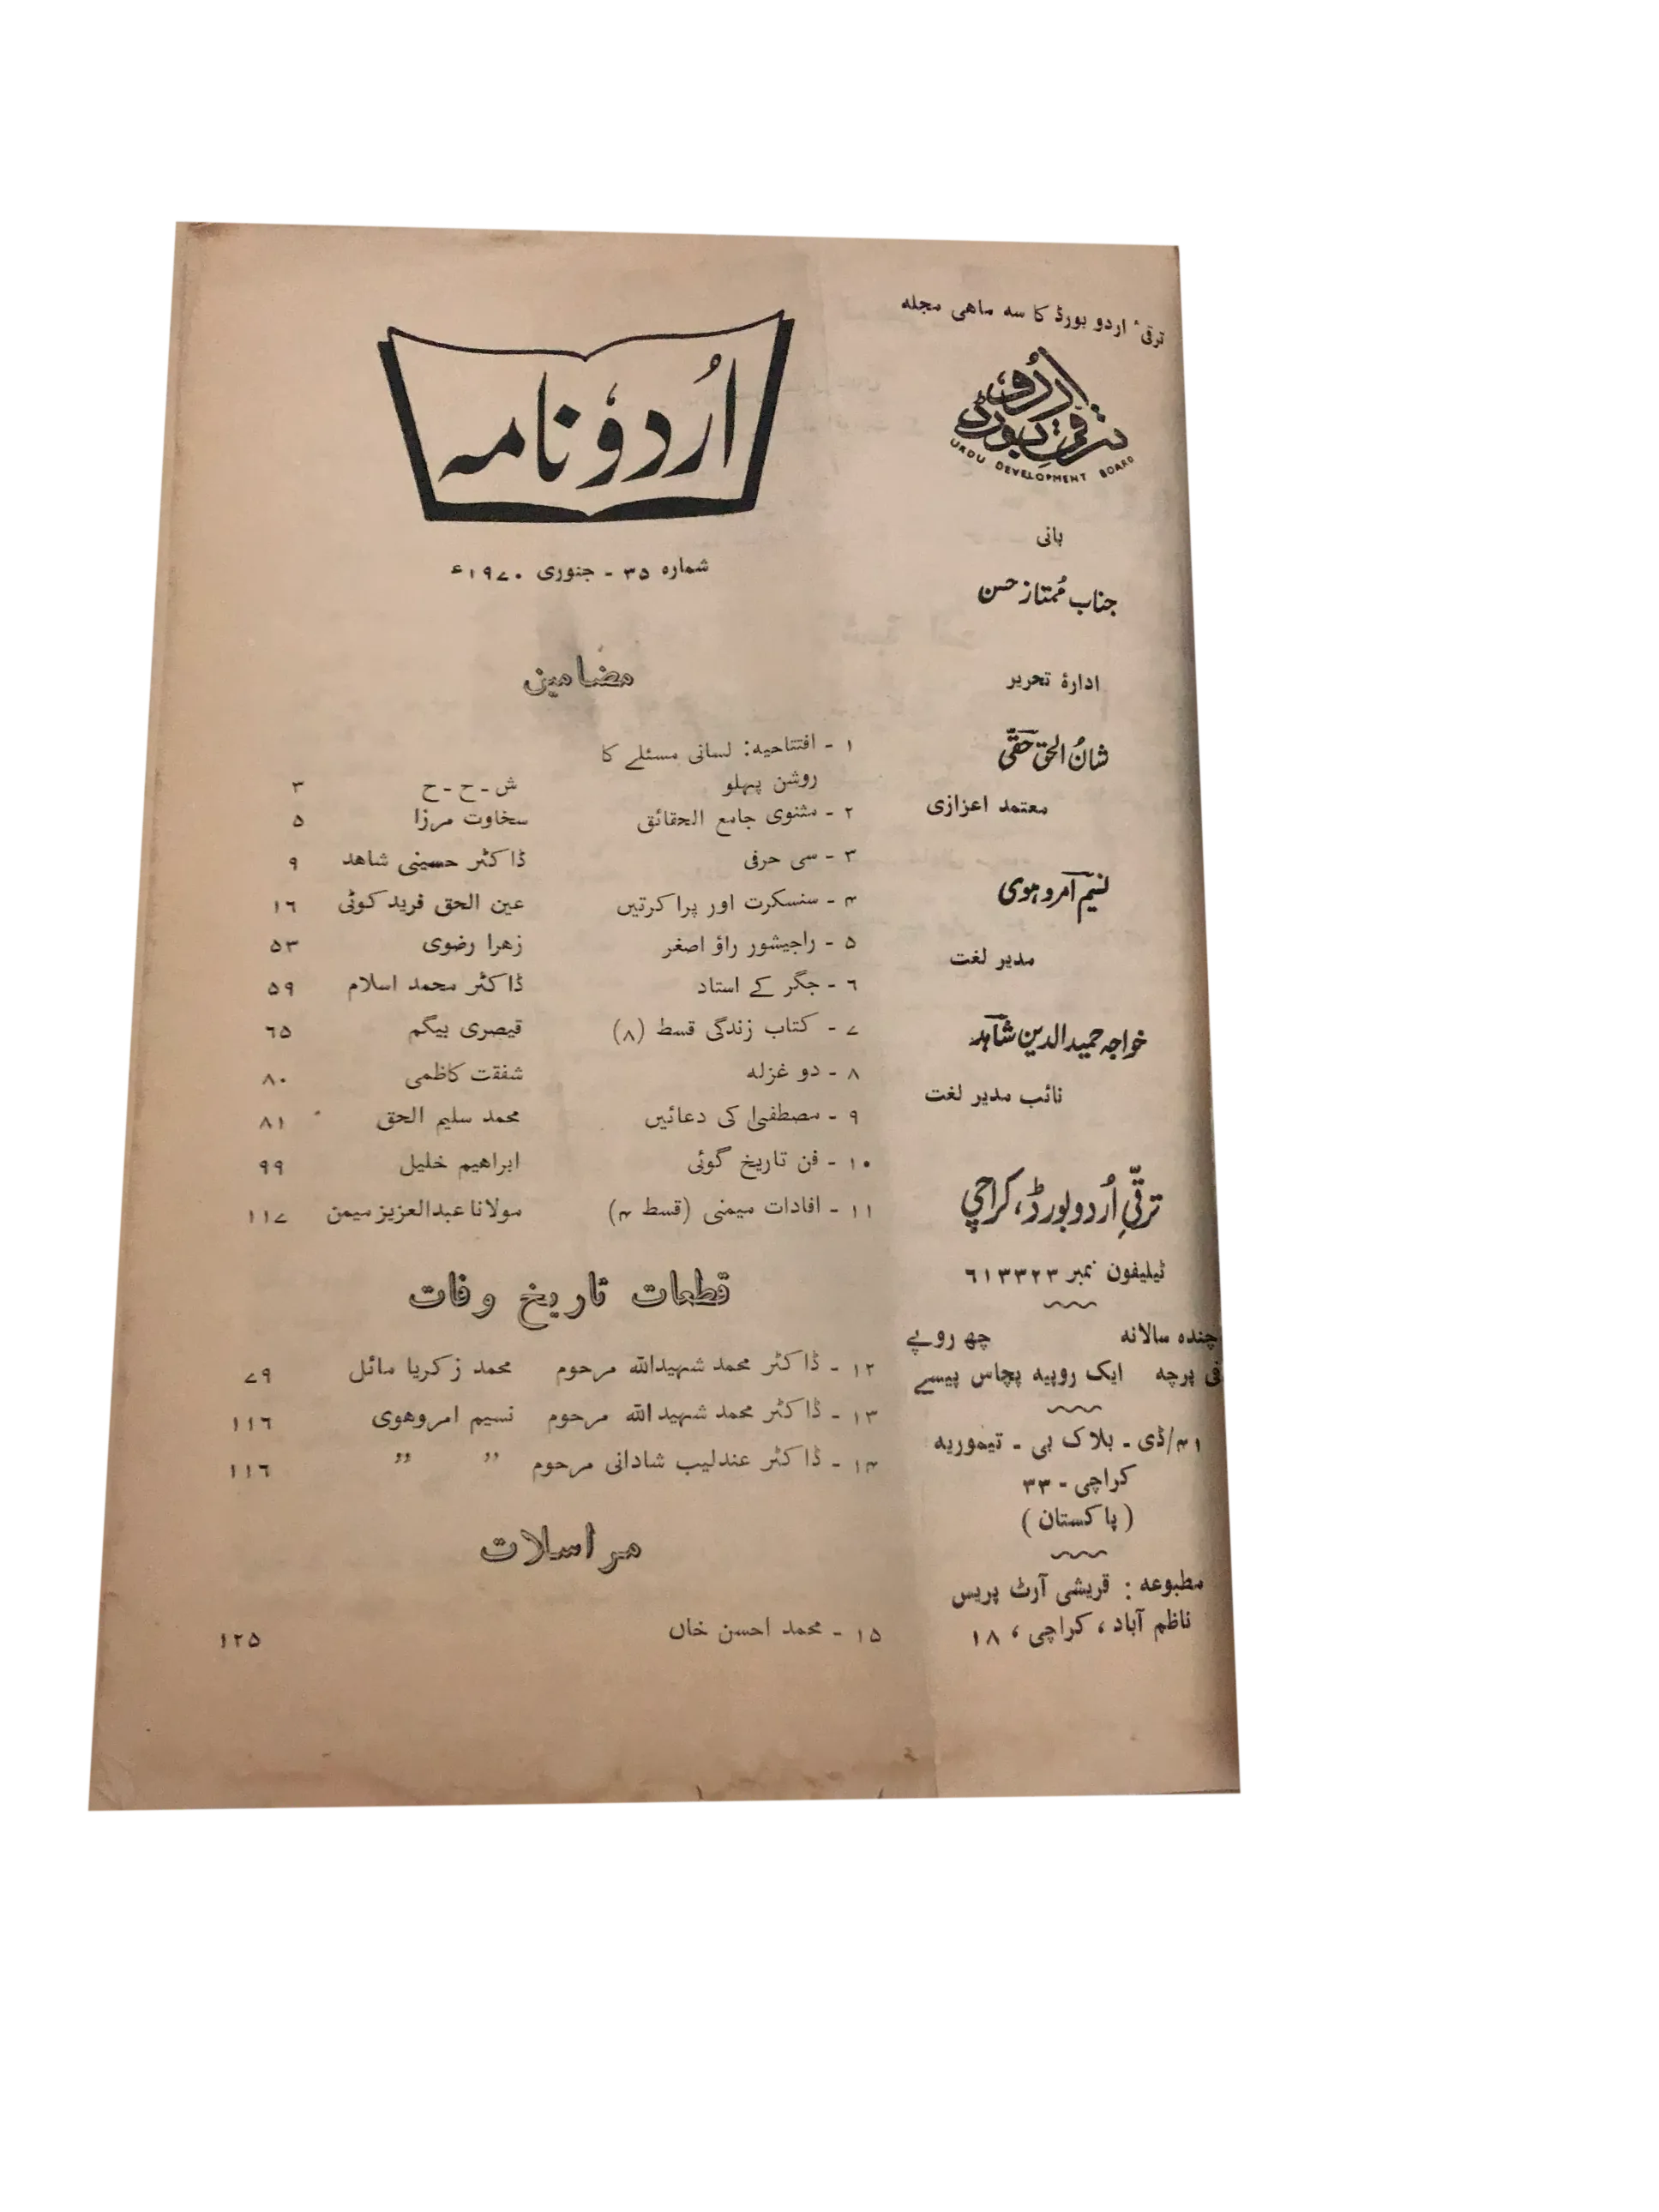 ترقیٔ اردو بورڈ کا سہ ماهی مجلہ
ترقیِ اردو بورڈ
URDU DEVELOPMENT BOARD
بانی
جناب مُمتاز حسن
ادارۂ تحریر
شانُ الحق حقّی
معتمد اعزازی
نسیم امروہوی
مدیر لغت
خواجہ حمید الدین شاہد
نائب مدیر لغت
ترقّیِ اُردو بورڈ، کراچی
ٹیلیفون نمبر ٦١٣٣٢٣
چندہ سالانہ چھ روپے
فی پرچہ ایک روپیہ پچاس پیسے
۴۱/ڈی - بلاک بی - تیموریہ
کراچی - ۳۳
( پاکستان )
مطبوعہ : قریشی آرٹ پریس
ناظم آباد ، کراچی ، ۱۸
اُردو نامہ
شمارہ ۳۵ - جنوری ۱۹۷۰ء
مضامین
۱ - افتتاحیہ: لسانی مسئلے کا
روشن پہلو ش - ح - ح ۳
۲ - مثنوی جامع الحقائق سخاوت مرزا ۵
۳ - سی حرفی ڈاکٹر حسینی شاهد ۹
۴ - سنسکرت اور پراکرتیں عین الحق فرید کوٹی ١٦
۵ - راجیشور راؤ اصغر زهرا رضوی ۵۳
٦ - جگر کے استاد ڈاکٹر محمد اسلام ۵۹
۷ - کتاب زندگی قسط (۸) قیصری بیگم ٦۵
۸ - دو غزلہ شفقت کاظمی ۸۰
۹ - مصطفیٰ کی دعائیں محمد سلیم الحق ۸۱
۱۰ - فن تاریخ گوئی ابراهیم خلیل ۹۹
۱۱ - افادات میمنی (قسط ۴) مولانا عبدالعزیز میمن ۱۱۷
قطعات تاریخ وفات
۱۲ - ڈاکٹر محمد شہیداللہ مرحوم محمد زکریا مائل ۷۹
۱۳ - ڈاکٹر محمد شہید اللہ مرحوم نسیم امروهوی ١١٦
۱۴ - ڈاکٹر عندلیب شادانی مرحوم ,, ,, ١١٦
مراسلات
۱۵ - محمد احسن خاں ۱۲۵